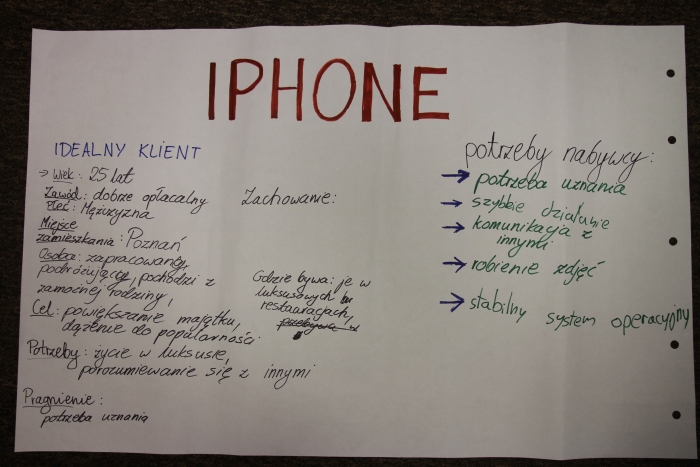 IPHONE
IDEALNY KLIENT
→ Wiek: 25 lat
Zawód: dobrze opłacalny
Płeć: Mężczyzna
Miejsce
zamieszkania: Poznań
Osoba: zapracowany,
podróżujący, pochodzi z
zamożnej rodziny,
Cel: powiększanie majątku,
dążenie do popularności
Potrzeby: życie w luksusie,
porozumiewanie się z innymi
Pragnienie:
potrzeba uznania
Zachowanie:
Gdzie bywa: je w
luksusowych
restauracjach,
potrzeby nabywcy:
→ potrzeba uznania
→ szybkie działanie
→ komunikacja z
innymi
→ robienie zdjęć
→ stabilny system operacyjny